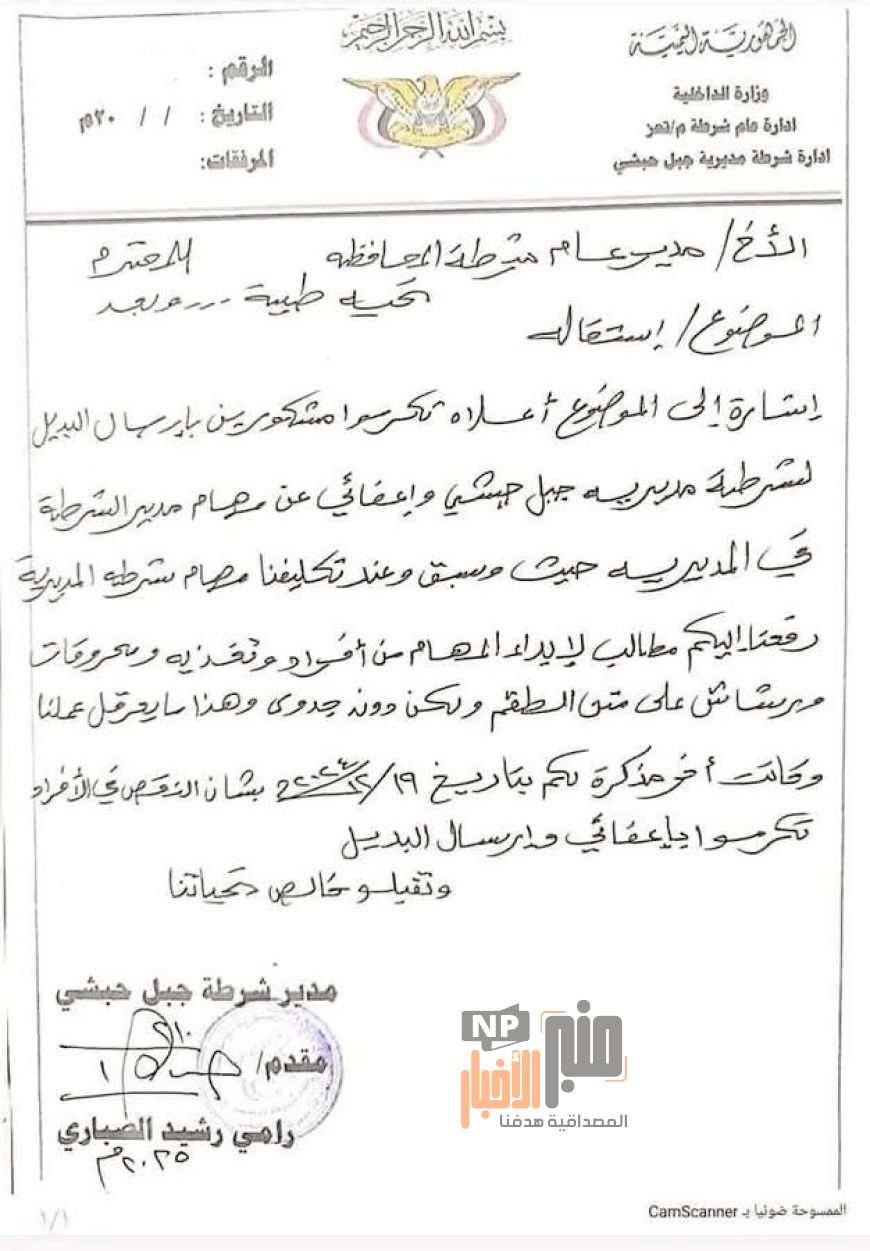 بسم الله الرحمن الرحيم
الجمهورية اليمنية
وزارة الداخلية
ادارة عام شرطة م/تعز
ادارة شرطة مديرية جبل حبشي
الرقم :
التاريخ : / / ٢٠م
المرفقات:
الأخ/ مدير عام شرطة المحافظه المحترم
تحيه طيبة .... وبعد
الموضوع/ إستقاله
إشارة إلى الموضوع أعلاه تكرموا مشكورين بإرسال البديل
لشرطة مديريه جبل حبشي وإعفائي عن مهام مدير الشرطة
في المديريه حيث وسبق وعند تكليفنا مهام شرطه المديرية
رفعنا إليكم مطالب لإيداء المهام من أفراد وتغذيه ومحروقات
ورشاش على متن الطقم ولكن دونه جدوى وهذا ما يعرقل عملنا
وكانت أخر مذكرة لكم بتاريخ ١٩/١٢/٢٠٢٤ بشان النقص في الأفراد
تكرموا بإعفائي وإرسال البديل
وتقبلو خالص تحياتنا
مدير شرطة جبل حبشي
مقدم/
رامي رشيد الصباري
٢٠٢٥م
NP
منبر
الأخبار
المصداقية هدفنا
الممسوحة ضوئيا بـ CamScanner
١/١